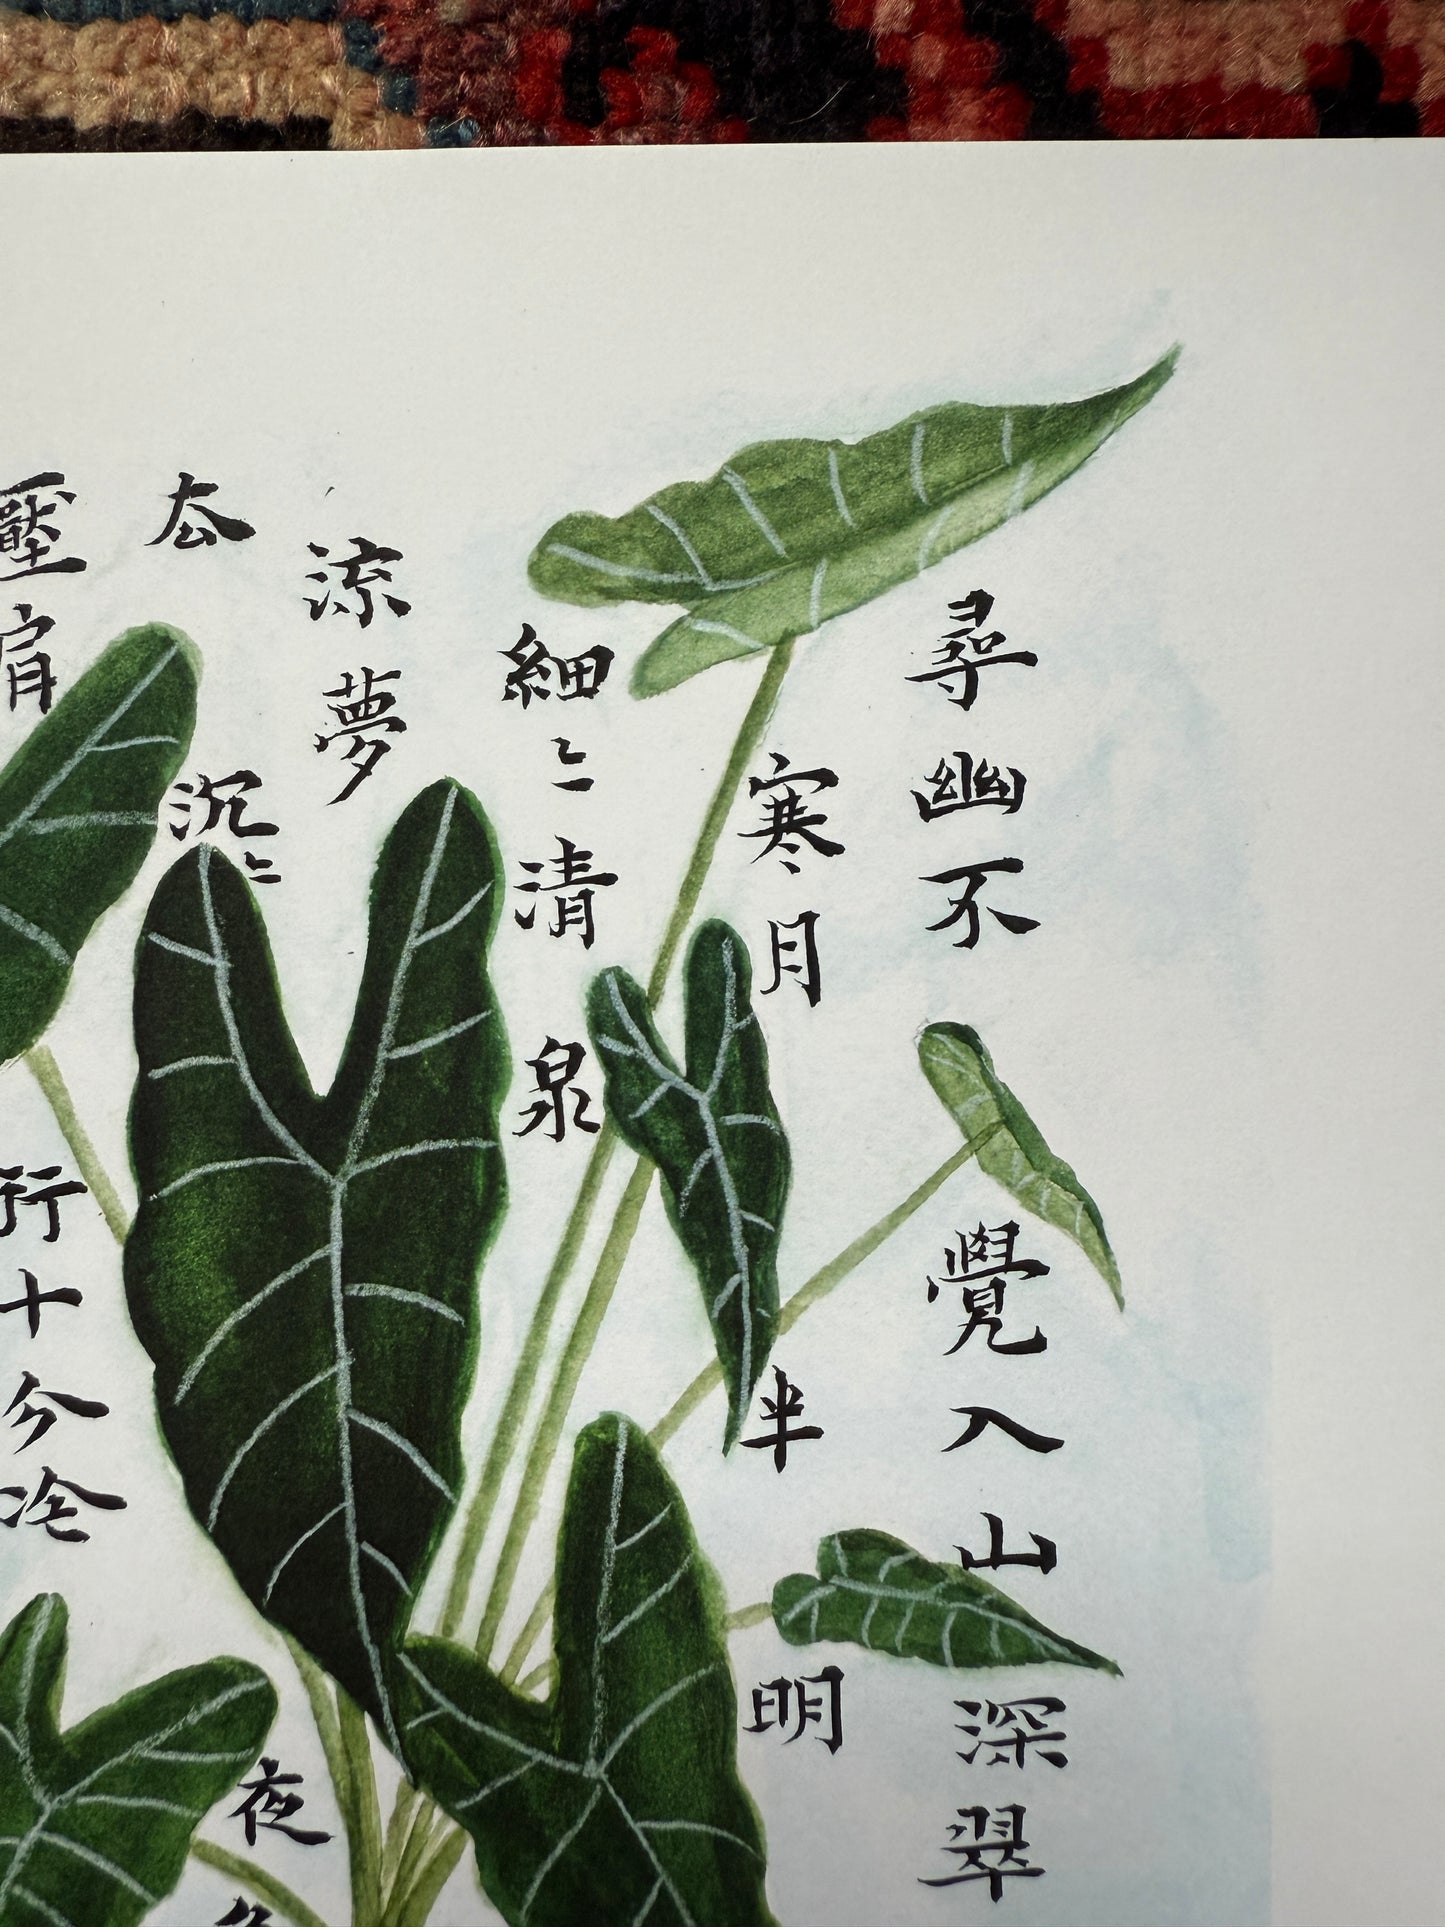 尋幽不覺入山深翠
寒月半明
細〻清泉
涼夢
厺沉〻夜
壓肩行十分冷